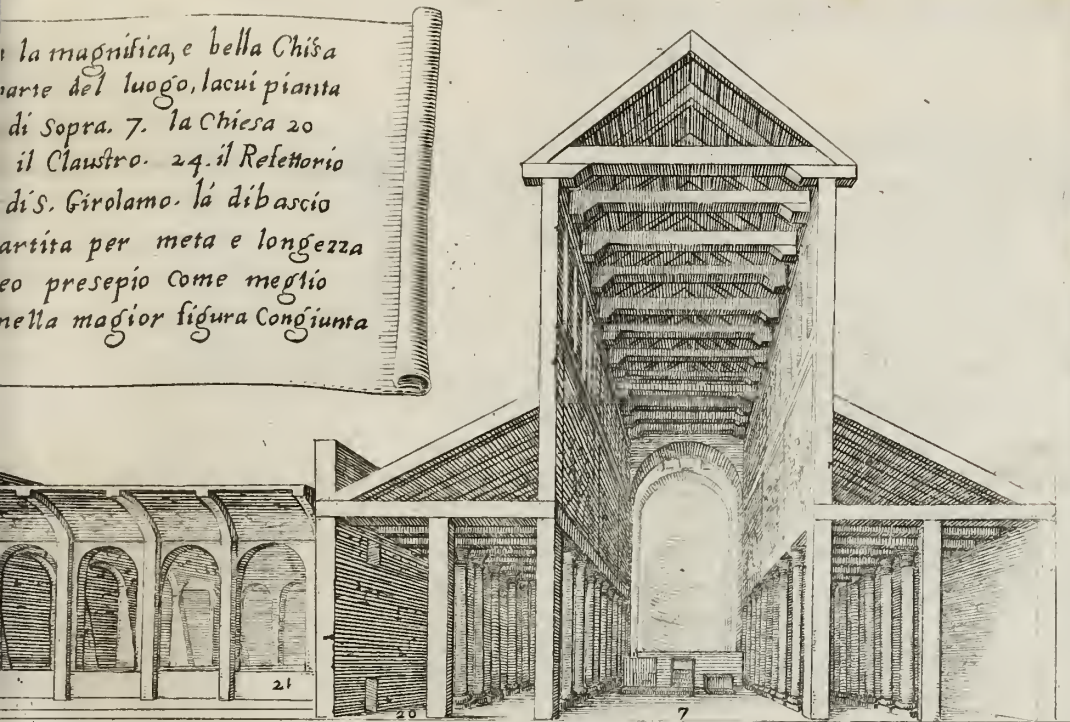 la magnifica, e bella Chisa
parte del luogo, lacui pianta
di Sopra. 7. la Chiesa 20
il Claustro. 24. il Refettorio
di S. Girolamo. lá dibascio
artita per meta e longezza
eo presepio Come meglio
nella magior figura Congiunta
21
20
7